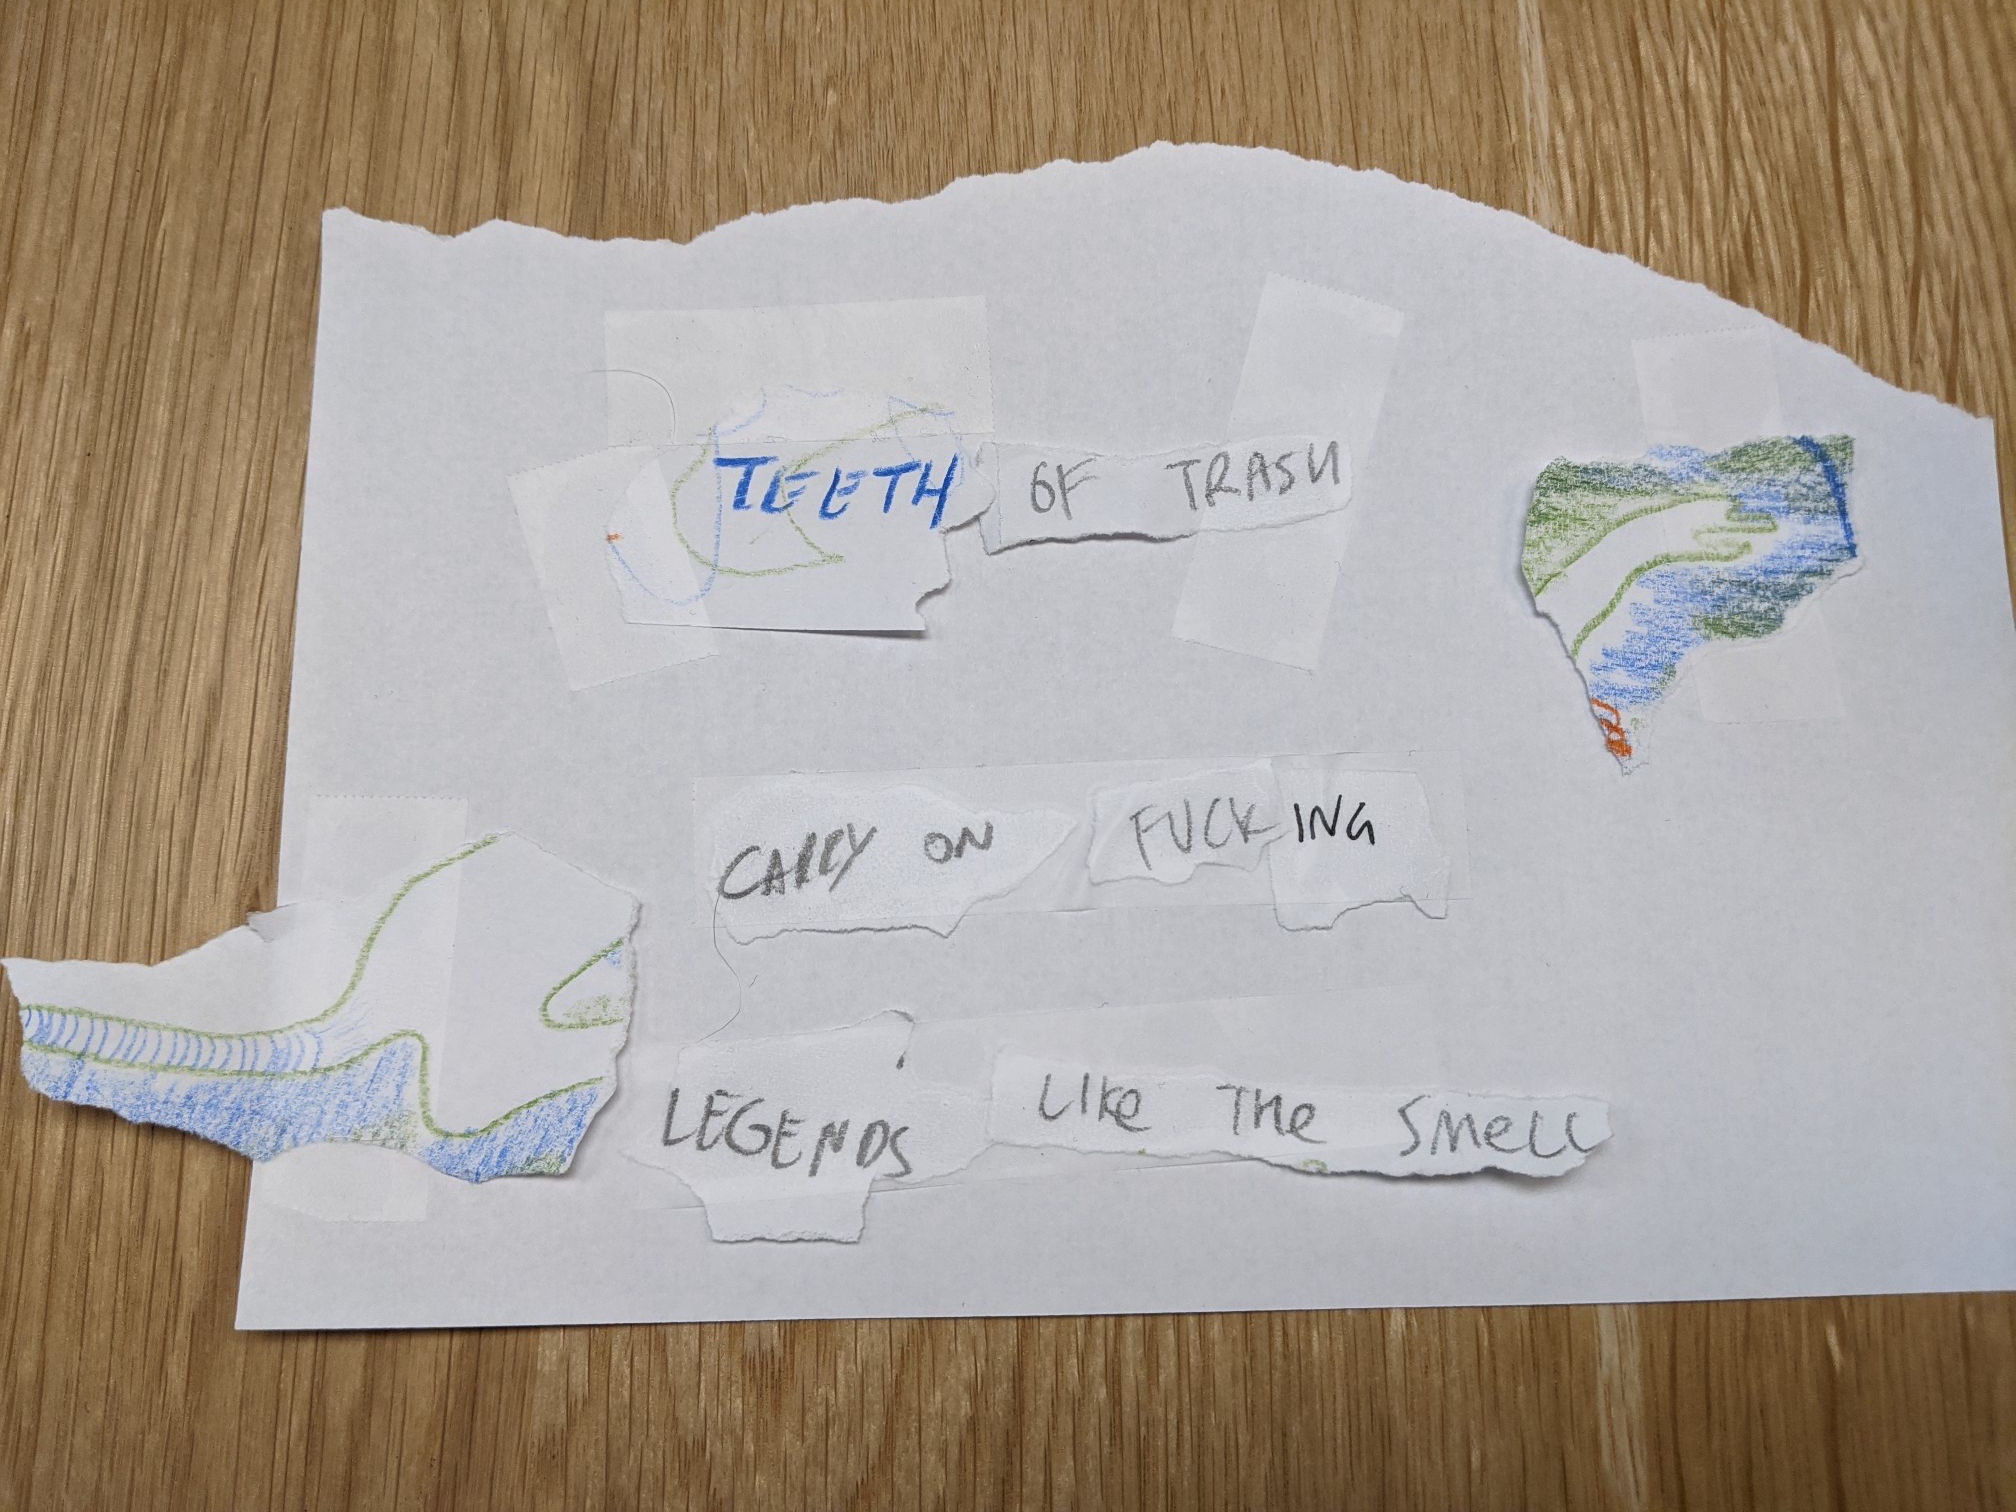 TEETH OF TRASH
CARRY ON FUCKING
LEGENDS LIKE THE SMELL